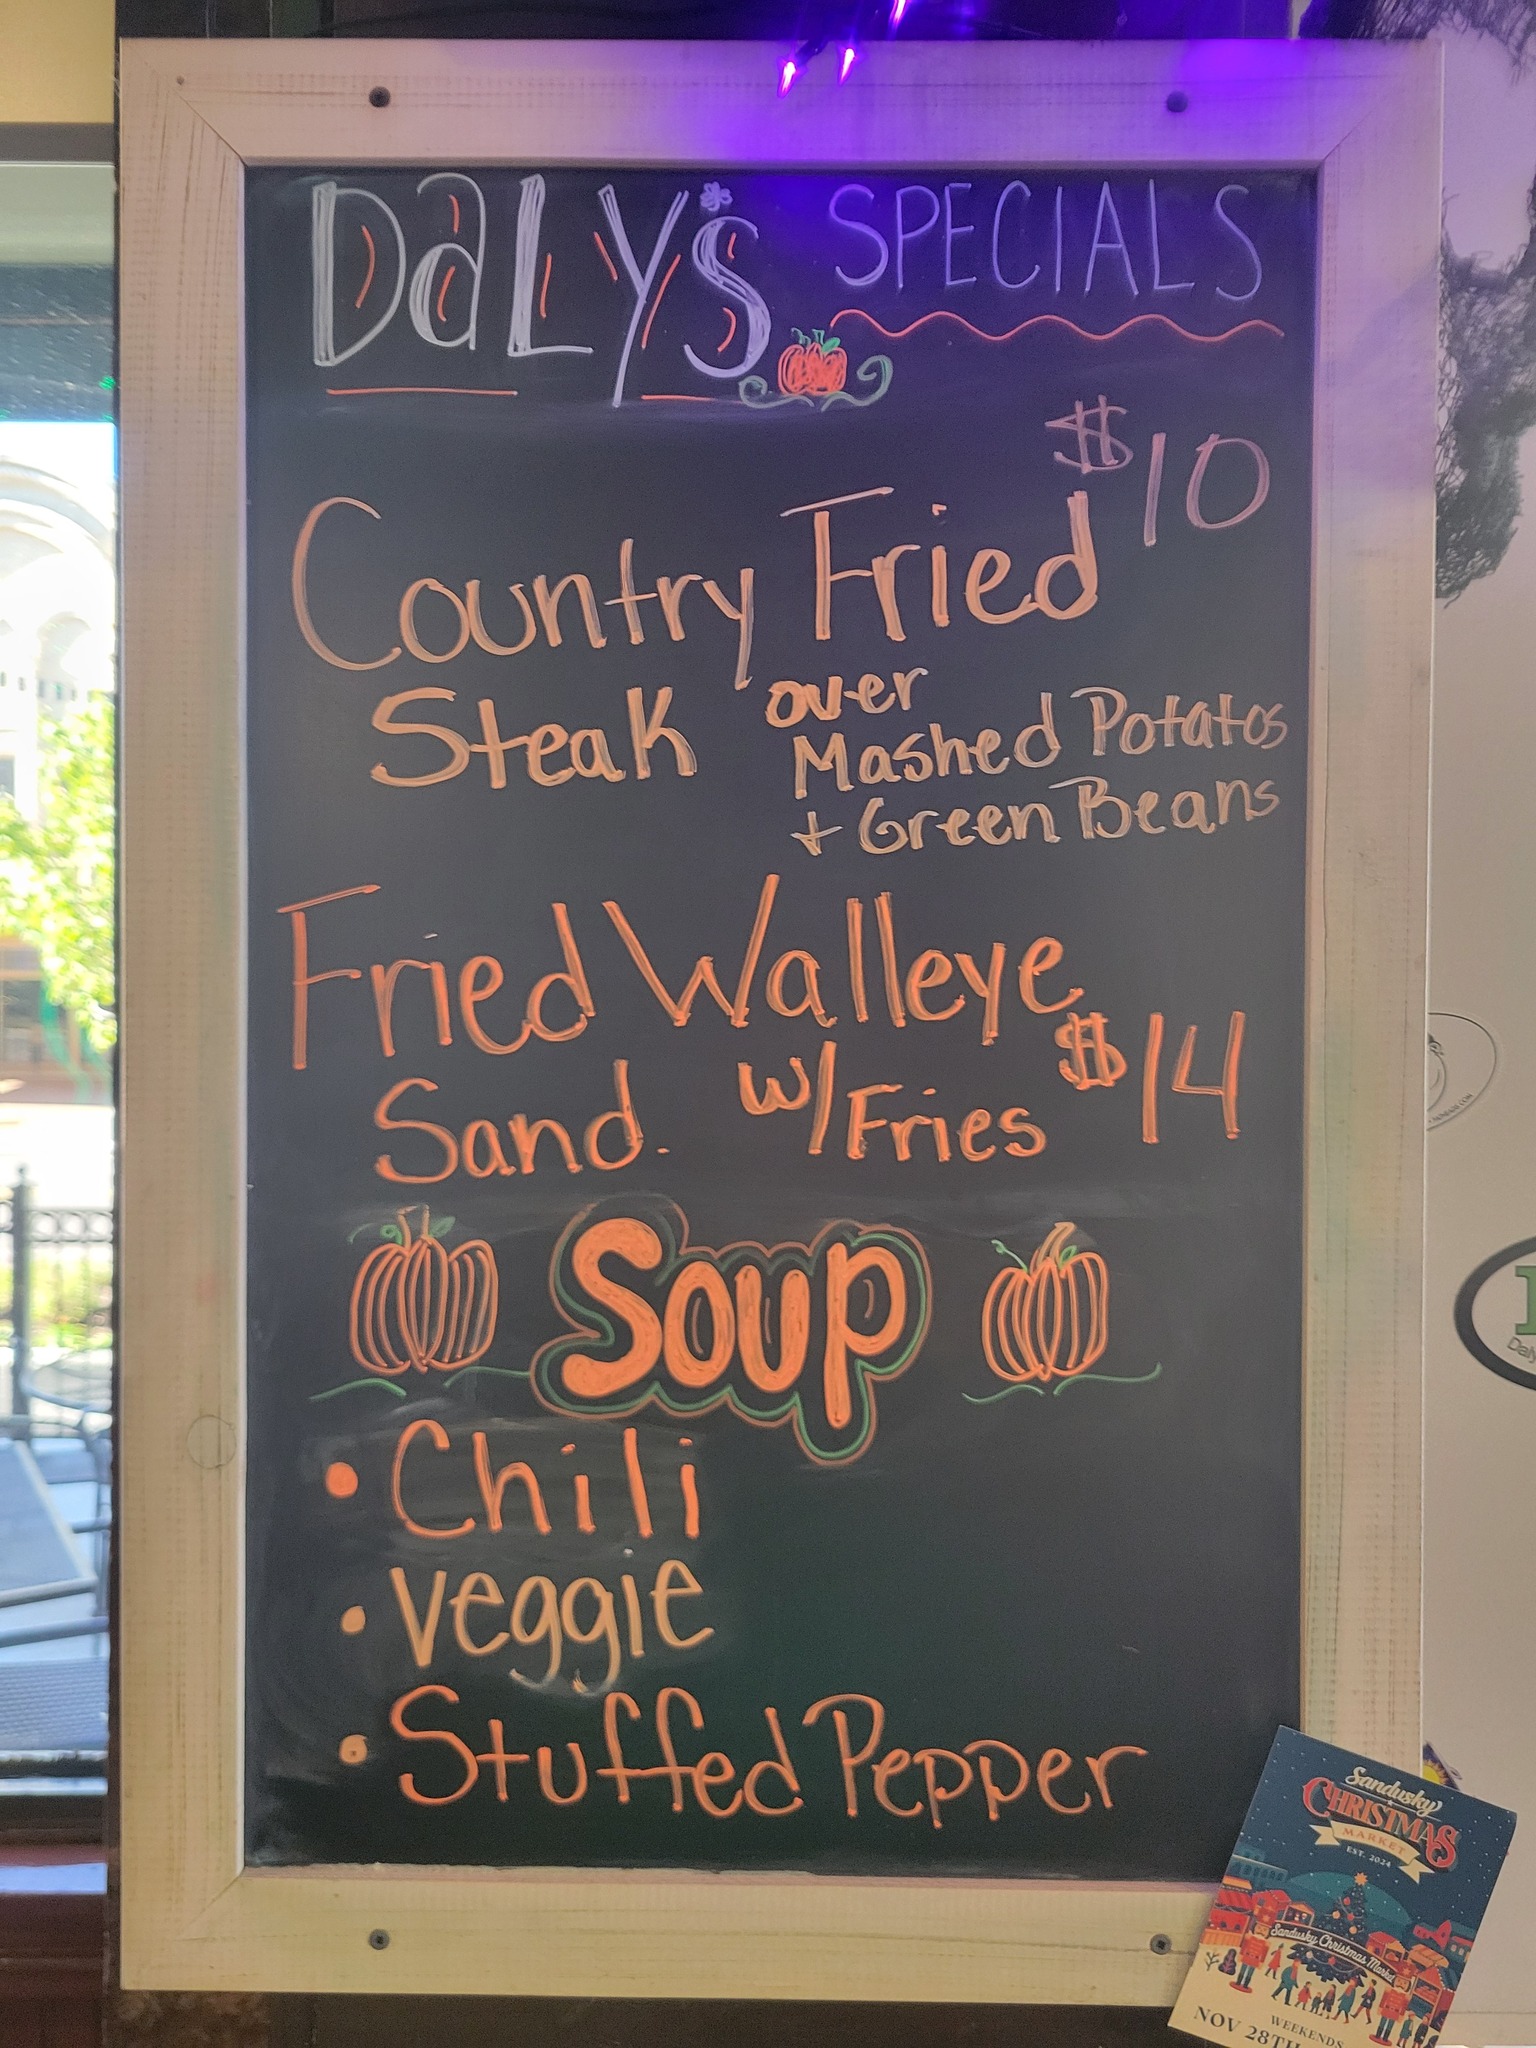 DaLY's SPECIALS
$10
Country Fried
Steak over
Mashed Potatos
+ Green Beans
Fried Walleye
Sand. w/Fries $14
Soup
• Chili
• Veggie
• Stuffed Pepper
Sandusky
CHRISTMAS
MARKET
EST. 2024
Sandusky Christmas Market
WEEKENDS
NOV 28TH